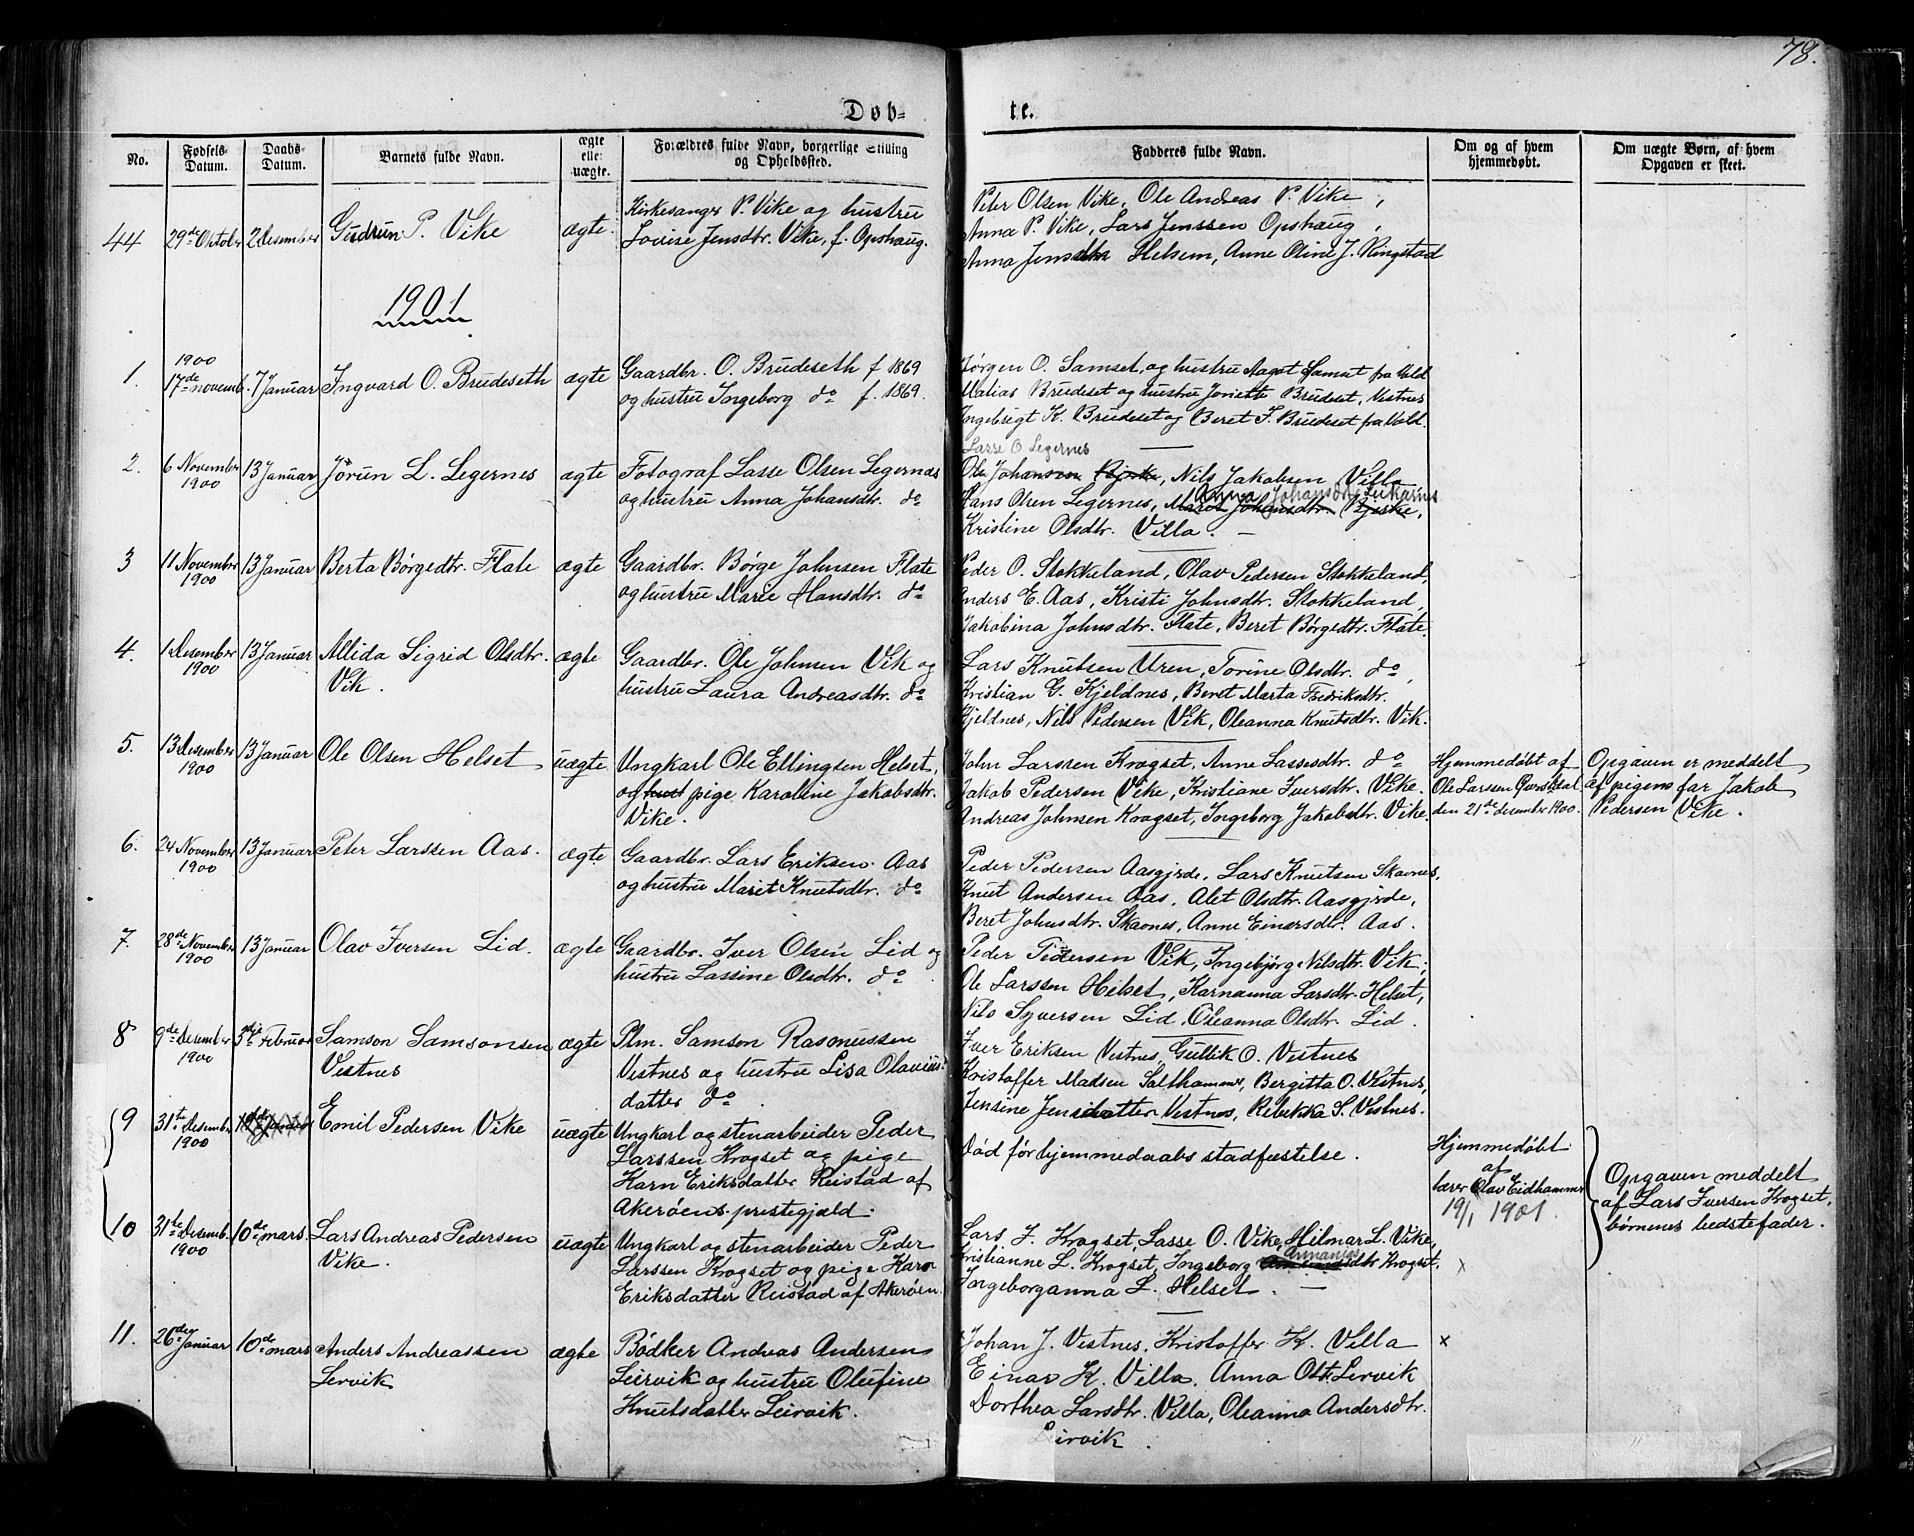 78.
Døb-
te.
No.
Fødsels-
Datum.
Daabs-
Datum.
Barnets fulde Navn.
ægte
elle:
uægte.
Forældres fulde Navn, borgerlige Stilling
og Opholdssted.
Fadderes fulde Navn.
Om og af hvem
hjemmedøbt.
Om uægte Børn, af hvem
Opgaven er skeet.
44
29de Oktober
2 desember
Gudrun P. Vike
ægte.
Kirkesanger P. Vike og hustru
Lovise Jensdtr. Vike, f. Opshaug.
Peter Olsen Vike, Ole Andreas P. Vike,
Anna P. Vike, Lars Jenssen Opshaug,
Anna Jensdtr Helsem, Anne Oline J. Ringstad
1901
1.
1900
17de novemb.
7 Januar
Ingvard O. Brudeseth
ægte
Gaardbr. O. Brudeseth f 1869
og hustru Ingeborg do f. 1869.
Jørgen O. Samset, og hustru Aagot Samset fra Vold
Matias Brudeset og hustru Joniette Brudeset, Vestnes
Ingebrigt K. Brudeset og Beret F. Brudeset fra Vold.
2.
6 November
1900
13 Januar
Jørun L. Legernes
ægte
Fotograf Lasse Olsen Legernes
og hustru Anna Johansdtr. do
Lasse O Legernes
Ole Johansen Bjerke, Nils Jakobsen Villa
Anna Johansdtr
Hans Olsen Legernes, Maret Johansdtr. Bjerke,
Kristine Olsdtr. Villa.
3
11 November
1900
13 Januar
Berta Børgedtr. Flate
ægte
Gaardbr. Børge Johnsen Flate
og hustru Marie Hansdtr. do
Peder O. Stokkeland, Olav Pedersen Stokkeland,
Anders E. Aas, Kristi Johnsdtr. Stokkeland,
Jakobina Johnsdtr. Flate, Beret Børgedtr. Flate.
4.
1 Desember
1900
13 Januar
Allida Sigrid Olsdtr.
Vik.
ægte
Gaardbr. Ole Johnsen Vik og
hustru Laura Andreasdtr. do
Lars Knutsen Uren, Torine Olsdtr. do,
Kristian G. Kjeldnes, Beret Marta Fredriksdtr.
Kjeldnes, Nils Pedersen Vik, Oleanna Knutsdtr. Vik.
5.
13 Desember
1900
13 Januar
Ole Olsen Helset
uægte
Ungkarl Ole Ellingsen Helset,
og hust pige Karoline Jakobsdtr.
Vike.
John Larssen Krogset, Anne Lassesdtr. do
Jakob Pedersen Vike, Kristiane Iversdtr. Vike.
Andreas Johnsen Krogset, Ingeborg Jakobsdtr. Vike.
Hjemmedøbt af
Ole Larssen
den 21de desember 1900.
Opgaven er meddelt
af pigens far Jakob
Pedersen Vike.
6.
24 November
1900
13 Januar
Peter Larssen Aas.
ægte
Gaardbr. Lars Eriksen Aas
og hustru Marit Knutsdtr. do
Peder Pedersen Aasgjrde, Lars Knutsen Skavnes,
Knut Andersen Aas, Alet Olsdtr. Aasgjrde,
Beret Johnsdtr. Skavnes, Anne Einersdtr. Aas.
7.
28de November
1900
13 Januar
Olav Iversen Lid.
ægte
Gaardbr. Iver Olsen Lid og
hustru Lassine Olsdtr. do
Peder Pedersen Vik, Ingebjørg Nilsdtr. Vik,
Ole Larssen Helset, Karnanna Larsdtr. Helset,
Nils Syversen Lid, Oleanna Olsdtr. Lid.
8
9de Desember
1900
3die Februar
Samson Samsonsen
Vestnes
ægte
Plm. Samson Rasmussen
Vestnes og hustru Lisa Olavius
datter do
Iver Eriksen Vestnes, Gullik O. Vestnes
Kristoffer Madsen Salthammer, Bergitta O. Vestnes,
Jensine Jensdatter Vestnes, Rebekka S. Vestnes.
9
31te Desember
1900
Emil Pedersen Vike
uægte
Ungkarl og stenarbeider Peder
Larssen Krogset og pige
Karn Eriksdatter Reistad af
Akerøens prestegjæld.
Død før hjemmedaabs stadfæstelse.
Hjemmedøbt
af
lærer Olav Eidhammer
19/1 1901.
Opgaven meddelt
af Lars Iversen Krogset,
børnenes bedstefader.
10
31te Desemb.
1900
10de mars
Lars Andreas Pedersen
Vike.
uægte
Ungkarl og stenarbeider Peder
Larssen Krogset og pige Karn
Eriksdatter Reistad af Akerøen.
Lars I. Krogset, Lasse O. Vike, Hilmar L. Vike,
Kristianne L. Krogset, Ingeborg Annanias dtr Krogset,
Ingeborganna L. Helset.
x
11.
26de Januar
10de mars
Anders Andreassen
Lervik
ægte
Bødker Andreas Andersen
Leirvik og hustru Olufine
Knutsdatter Leirvik.
Johan J. Vestnes, Kristoffer K. Villa
Einar K. Villa, Anna Olsdtr. Lervik
Dorthea Larsdtr. Villa, Oleanna Andersdtr.
Leirvik.
x